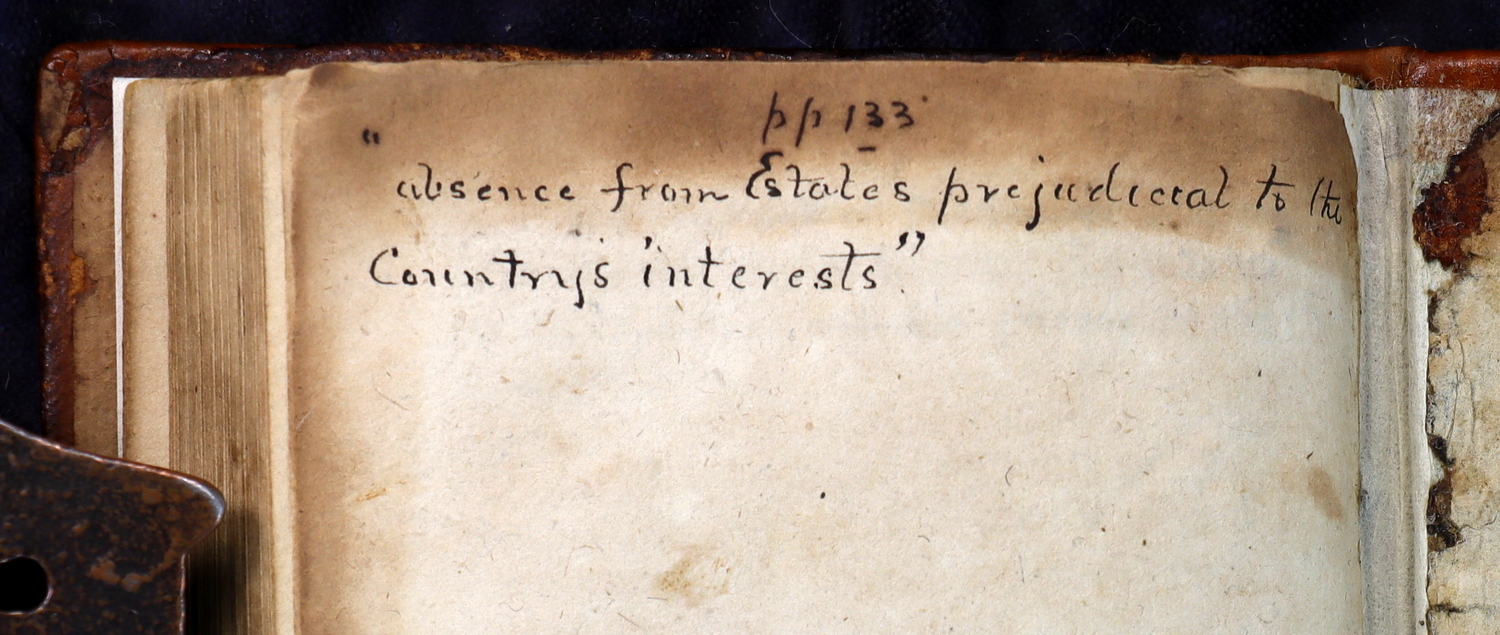 pp 133
"
absence from Estates prejudicial to the
Country's interests"